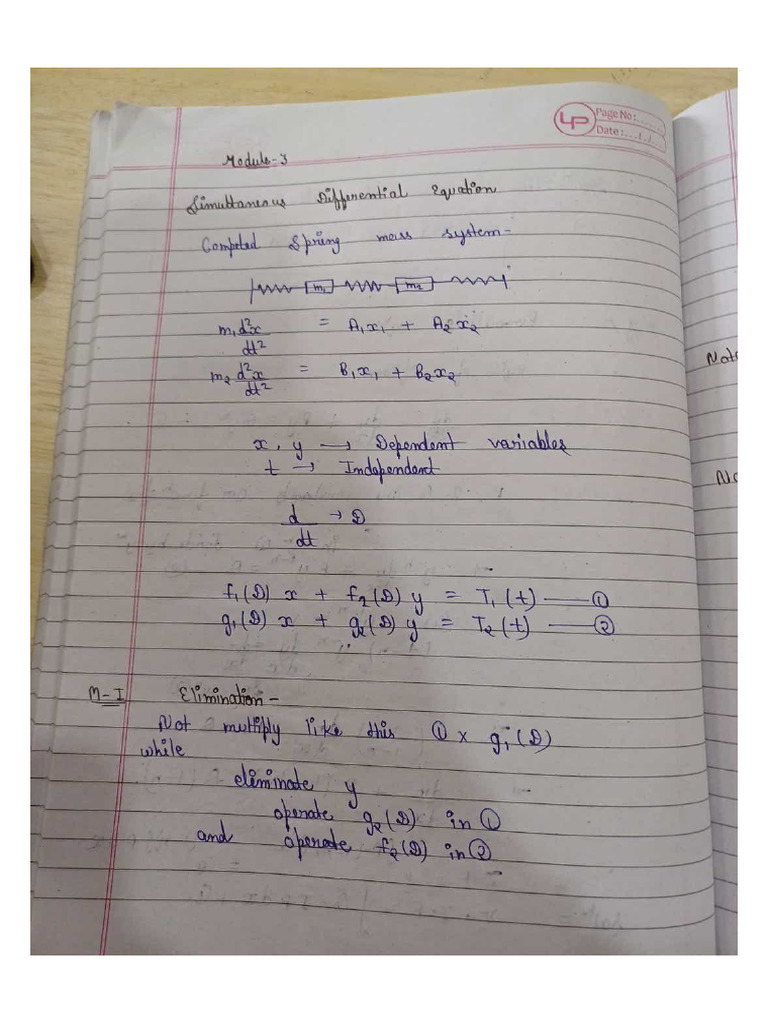 LP
Page No:......
Date:.../../...
Module-3
Simultaneous Differential Equation
Competed Spring mass system-
m₁ m₂
m₁ d²x/dt² = A₁x₁ + A₂x₂
m₂ d²x/dt² = B₁x₁ + B₂x₂
x, y → Dependent variables
t → Independent
d/dt → D
f₁(D) x + f₂(D) y = T₁(t) — ①
g₁(D) x + g₂(D) y = T₂(t) — ②
M-I Elimination-
Not multiply like this ① x g₁(D)
while
eliminate y
operate g₂(D) in ①
and operate f₂(D) in ②
Note
No